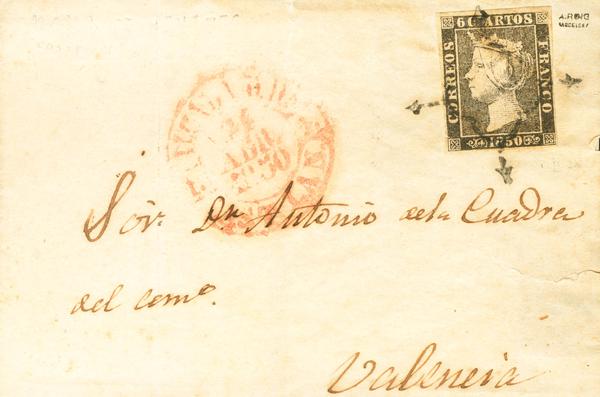 6 CUARTOS
CORREOS
FRANCO
1850
A.ROIG
BARCELONA
24
ABR
1850
Sor. Dn Antonio de la Cuadra
del como.
Valencia